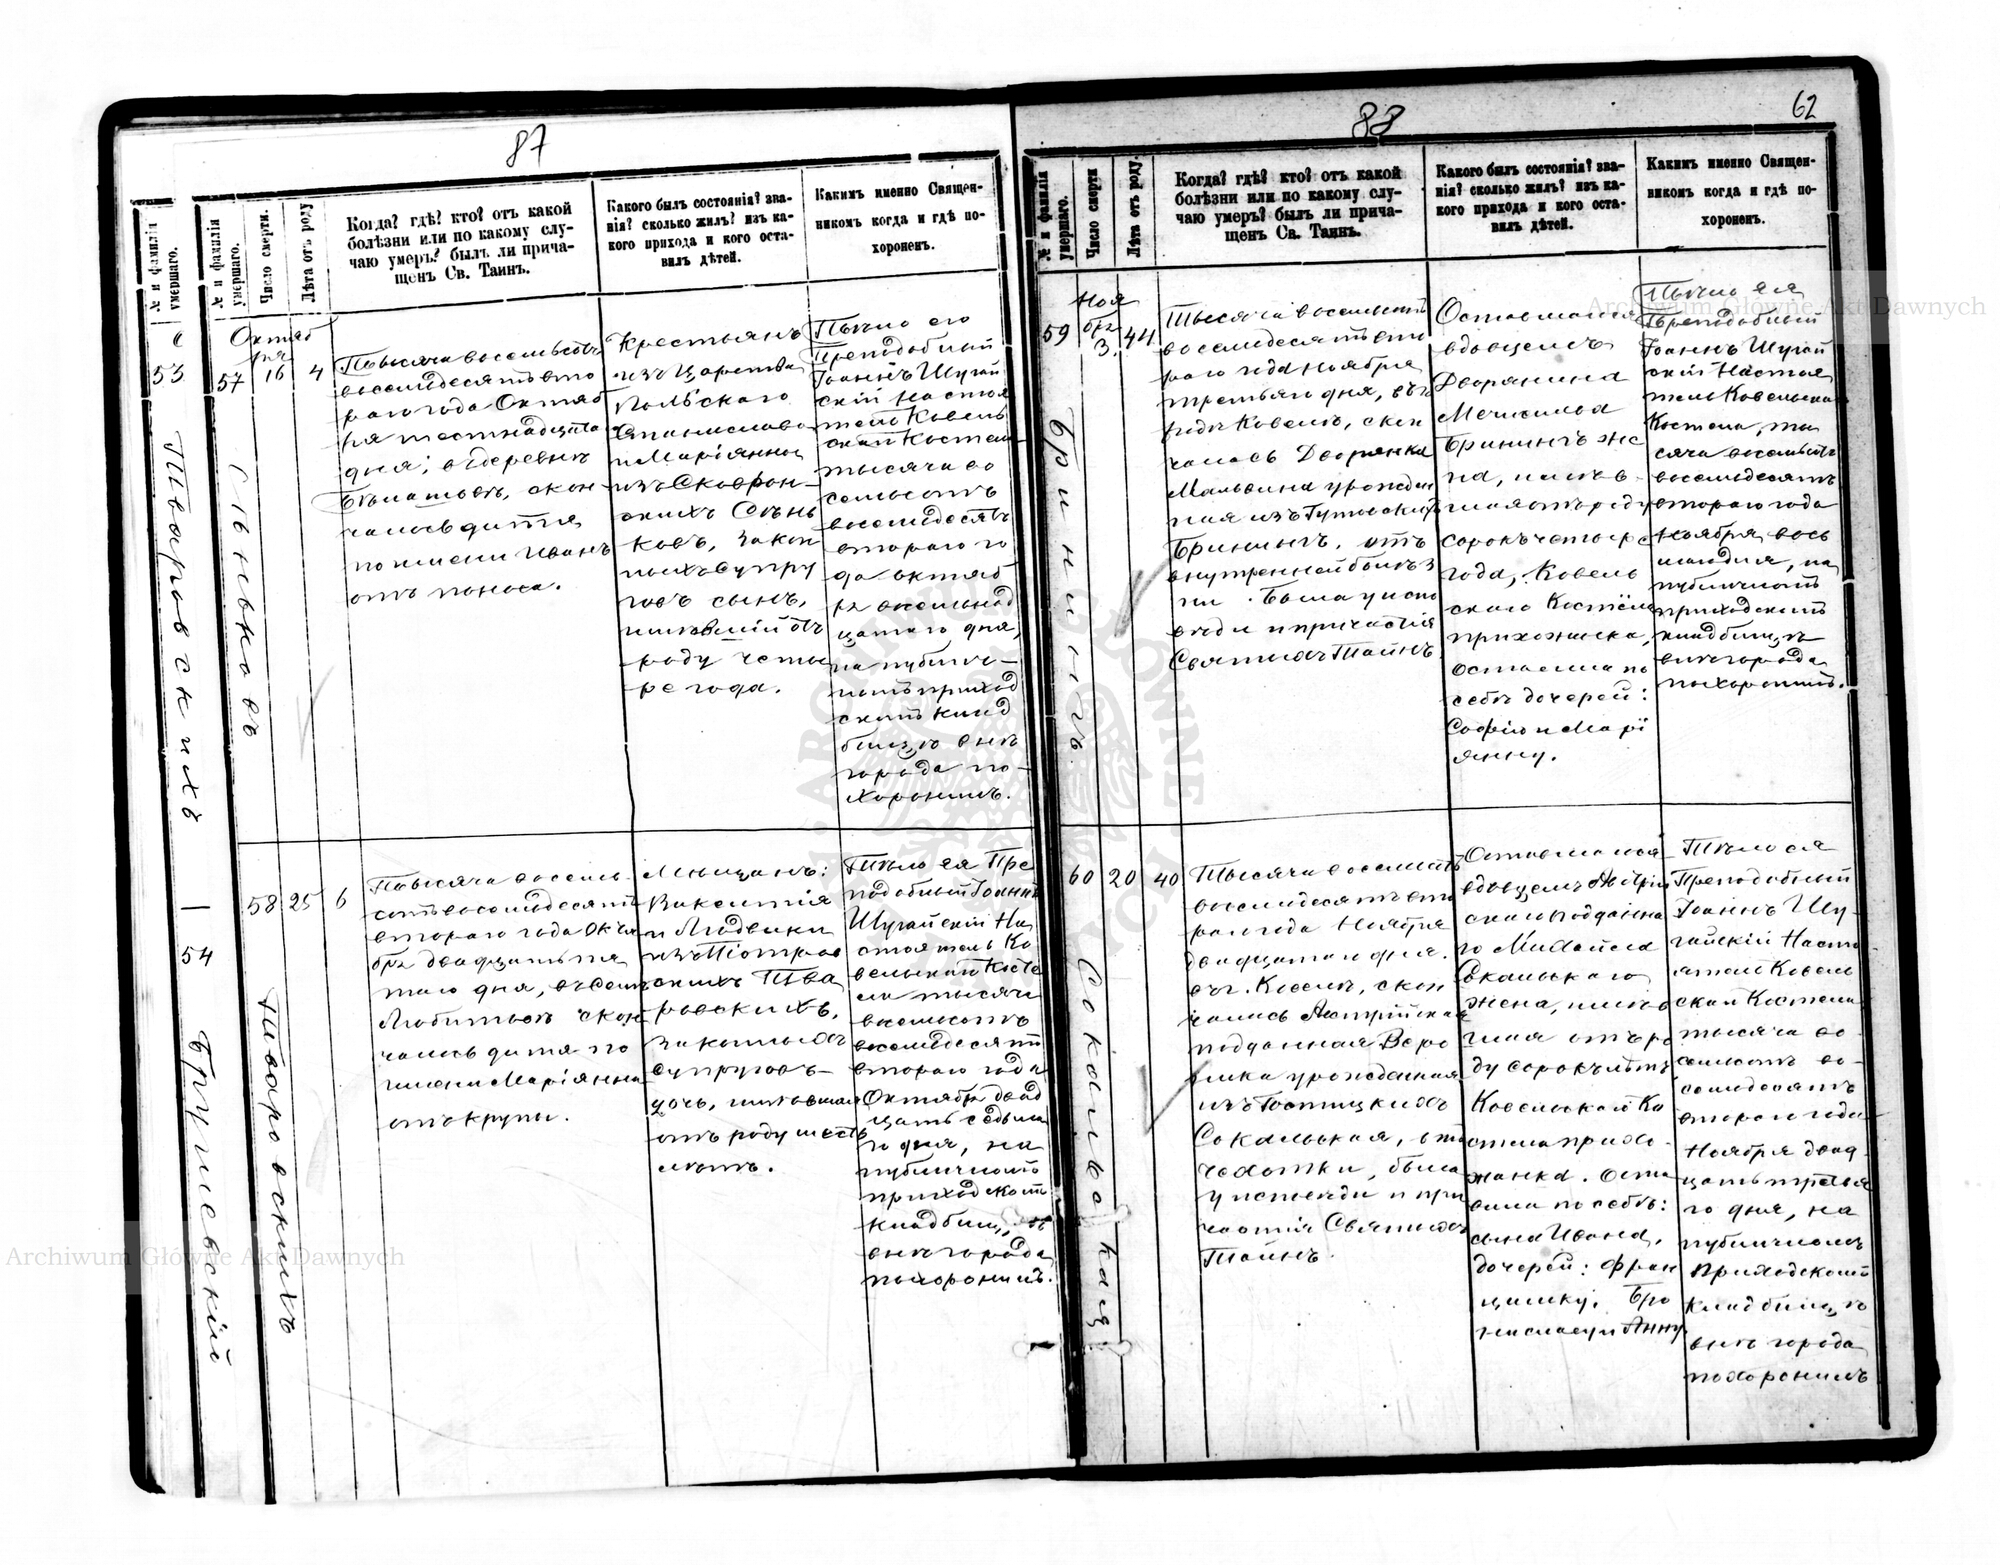 87
№ и фамилія умершаго.
53
Тваровскихъ
54
Брушевскій
№ и фамилія умершаго.
Число смерти.
Лѣта отъ роду
Когда? гдѣ? кто? отъ какой
болѣзни или по какому слу-
чаю умеръ? былъ ли прича-
щенъ Св. Таинъ.
Какого былъ состоянія? зва-
нія? сколько жилъ? изъ ка-
кого прихода и кого оста-
вилъ дѣтей.
Какимъ именно Священ-
никомъ когда и гдѣ по-
хороненъ.
Октяб
ря
57
16
4
Сѣньковъ
Тысяча восемьсотъ
восемдесятъ вто
раго года Октяб
ря шестнадцата
дня, въ деревнѣ
скон-
чалось дитя
по имени Иванъ
отъ поноса.
Крестьянъ
изъ Царства
Польскаго
Станислава
и Маріянны
изъ Сковрон-
скихъ Сѣнь
ковъ, закон
ныхъ супру
говъ сынъ,
имѣвшій отъ
роду четы
ре года.
Тѣло его
Преподобный
Іоаннъ Шугай
скій Настоя
тель Ковель
скаго Костела
тысяча во
семьсотъ
восемдесятъ
втораго го
да октяб
ря восемнад
цатаго дня,
на публич-
номъ приход
скомъ клад
бищѣ внѣ
города по-
хоронилъ.
58
25
6
Тваровскихъ
Тысяча восемь-
сотъ восемдесятъ
втораго года Октя
бря двадцать пя
таго дня, въ селѣ
Любитовѣ скон
чалось дитя по
имени Маріянна
отъ крупы.
Мѣщанъ:
Викентія
и Людвики
изъ Піотров
скихъ Тва
ровскихъ,
законныхъ
супруговъ-
дочь, имѣвшая
отъ роду шесть
лѣтъ.
Тѣло ея Пре
подобный Іоаннъ
Шугайскій На
стоятель Ко
вельскаго Косте
ла тысяча
восемьсотъ
восемдесятъ
втораго года
Октября двад
цать седьма
го дня, на
публичномъ
приходскомъ
кладбищѣ
внѣ города
похоронилъ.
88
62
№ и фамилія умершаго.
Число смерти
Лѣта отъ роду.
Когда? гдѣ? кто? отъ какой
болѣзни или по какому слу-
чаю умеръ? былъ ли прича-
щенъ Св. Таинъ.
Какого былъ состоянія? зва-
нія? сколько жилъ? изъ ка-
кого прихода и кого оста-
вилъ дѣтей.
Какимъ именно Священ-
никомъ когда и гдѣ по-
хороненъ.
Ноя
бря
59
3.
44
Бринингъ
Тысяча восемьсотъ
восемдесятъ вто
раго года Ноября
третьяго дня, въ го
родѣ Ковелѣ, скон
чалась Дворянка
Мальвина урожден
ная изъ Гутовскихъ
Бринингъ, отъ
внутренней болѣз
ни. Была у испо
вѣди и причастія
Святыхъ Тайнъ.
Оставшагося
вдовцемъ
Дворянина
Бринингъ же
на, имѣв-
шая отъ роду
сорокъ четыре
года, Ковель
скаго Костёла
прихожанка,
оставила по
себѣ дочерей:
Софію и Марі
янну.
Тѣло ея
Преподобный
Іоаннъ Шугай
скій Настоя
тель Ковельскаго
Костела, ты
сяча восемьсотъ
восемьдесятъ
втораго года
Ноября вось
маго дня, на
публичномъ
приходскомъ
кладбищѣ
внѣ города
похоронилъ.
60
20
40
Сокальская
Тысяча восемьсотъ
восемдесятъ вто
раго года Ноября
двадцатаго дня.
въ г. Ковелѣ, скон
чалась Австрійская
подданная Веро
ника урожденная
изъ
Сокальская, отъ
чахотки, была
у исповѣди и при
частія Святыхъ
Тайнъ.
Оставшагося
вдовцемъ Австрій
скаго подданна
го Михаила
Сокальскаго
жена, имѣв
шая отъ ро
ду сорокъ лѣтъ
Ковельскаго Ко
стела прихо-
жанка. Оста
вила по себѣ:
сына Ивана,
дочерей: Фран
цишку, Бро
ниславу и Анну.
Тѣло ея
Преподобный
Іоаннъ Шу-
гайскій Насто
ятель Ковель
скаго Костела
тысяча во-
семьсотъ во-
семьдесятъ
втораго года
Ноября двад
цать третья
го дня, на
публичномъ
Приходскомъ
кладбищѣ
внѣ города
похоронилъ
Archiwum Główne Akt Dawnych
Archiwum Główne Akt Dawnych